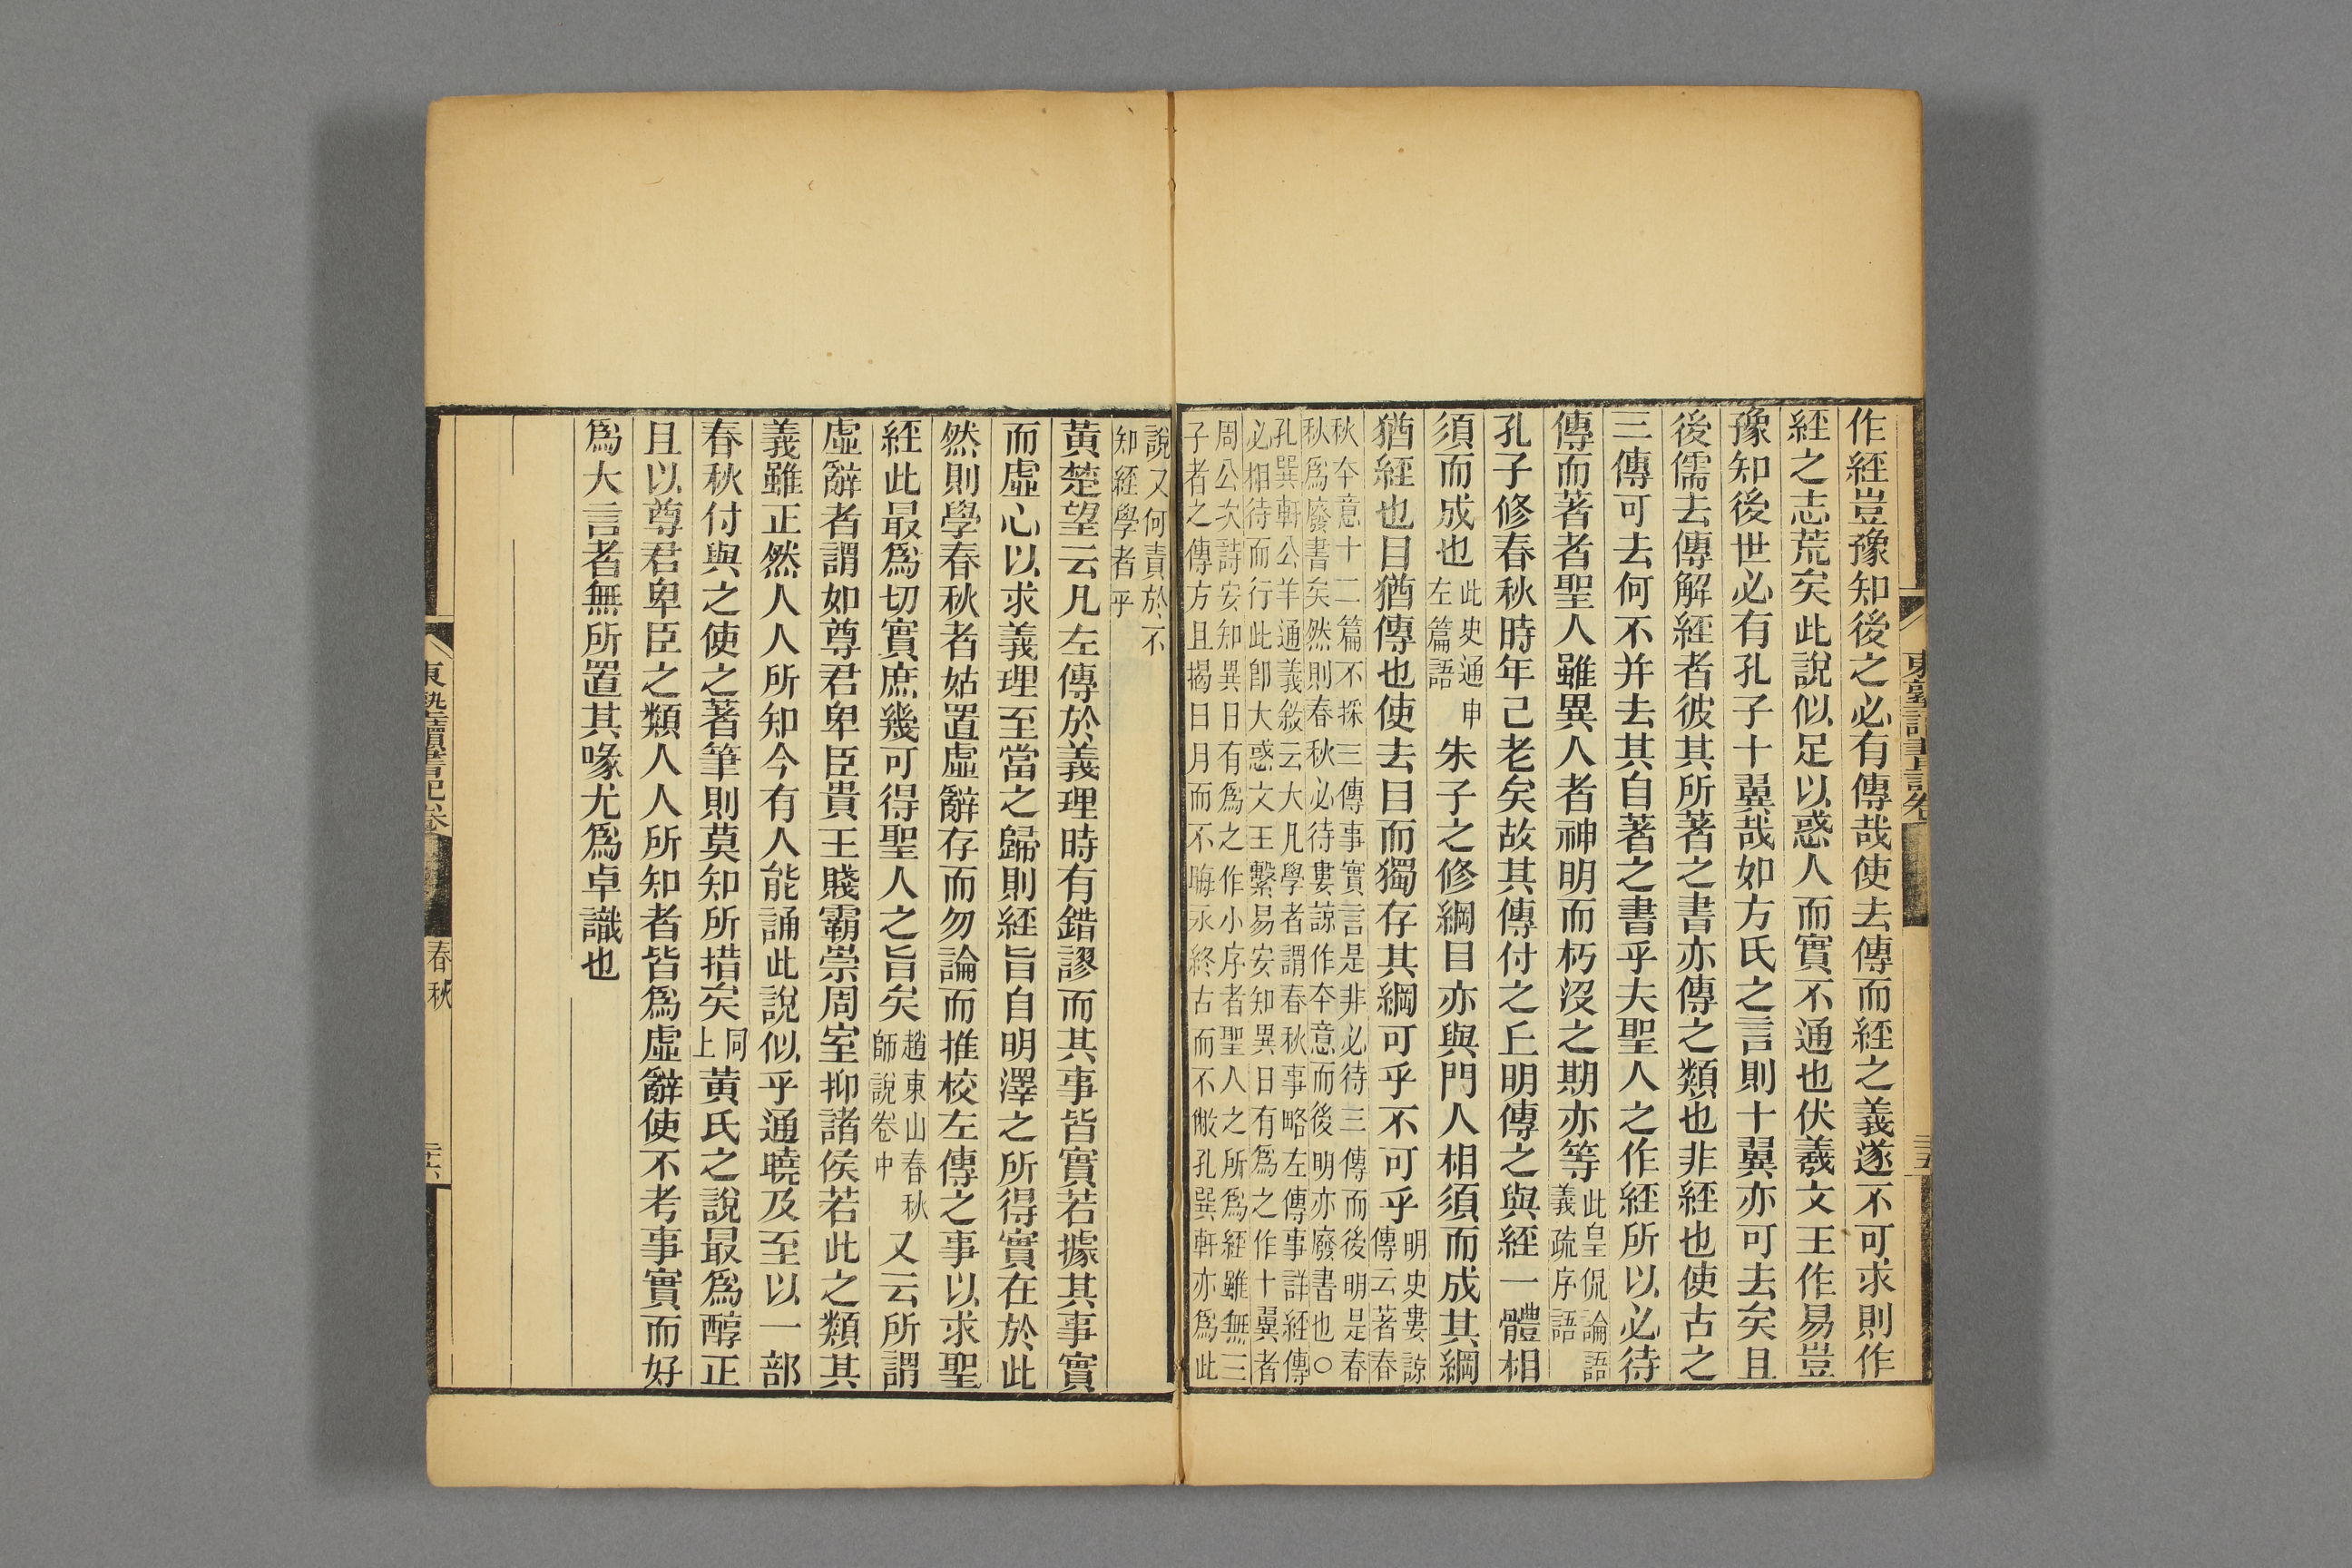 作經豈豫知後之必有傳哉使去傳而經之義遂不可求則作
經之志荒矣此說似足以惑人而實不通也伏羲文王作易豈
豫知後世必有孔子十翼哉如方氏之言則十翼亦可去矣且
後儒去傳解經者彼其所著之書亦傳之類也非經也使古之
三傳可去何不并去其自著之書乎夫聖人之作經所以必待
傳而著者聖人雖異人者神明而朽沒之期亦等此皇侃論語義疏序語
孔子修春秋時年已老矣故其傳付之丘明傳之與經一體相
須而成也此史通申左篇語朱子之修綱目亦與門人相須而成其綱
猶經也目猶傳也使去目而獨存其綱可乎不可乎明史婁諒傳云著春
秋夲意十二篇不採三傳事實言是非必待三傳而後明是春
秋爲廢書矣然則春秋必待婁諒作夲意而後明亦廢書也○
孔巽軒公羊通義敘云大凡學者謂春秋事略左傳事詳經傳
必相待而行此卽大惑文王繫易安知異日有爲之作十翼者
周公次詩安知異日有爲之作小序者聖人之所爲經雖無三
子者之傳方且揭日月而不晦永終古而不敝孔巽軒亦爲此
說又何責於不
知經學者乎
黃楚望云凡左傳於義理時有錯謬而其事皆實若據其事實
而虛心以求義理至當之歸則經旨自明澤之所得實在於此
然則學春秋者姑置虛辭存而勿論而推校左傳之事以求聖
經此最爲切實庶幾可得聖人之旨矣趙東山春秋師說卷中又云所謂
虛辭者謂如尊君卑臣貴王賤霸崇周室抑諸侯若此之類其
義雖正然人人所知今有人能誦此說似乎通曉及至以一部
春秋付與之使之著筆則莫知所措矣同上黃氏之說最爲醇正
且以尊君卑臣之類人人所知者皆爲虛辭使不考事實而好
爲大言者無所置其喙尤爲卓識也
東塾讀書記卷
春秋